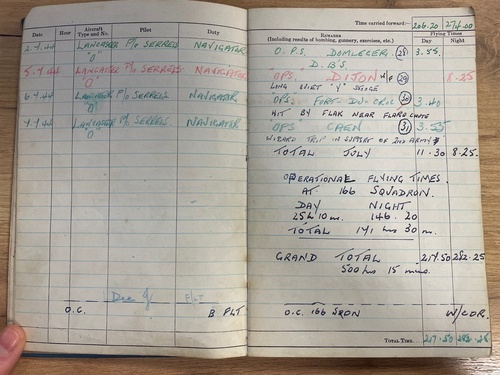 Date Hour Aircraft Type and No. Pilot Duty
2.7.44 LANCASTER "O" P/O SERRELS NAVIGATOR
5.7.44 LANCASTER "O" P/O SERRELS NAVIGATOR
6.7.44 LANCASTER "O" P/O SERRELS NAVIGATOR
7.7.44 LANCASTER "O" P/O SERRELS NAVIGATOR
O.C. B FLT
Time carried forward:— 206.20 274.00
Remarks (Including results of bombing, gunnery, exercises, etc.) Flying Times
Day Night
O.P.S. DOMLEGER. (28) 3.55
D.B'S.
OPS. DIJON M/F (29) 8.25
LONG QUIET "Y" STOOGE
OPS. FORET-DU-CROC (30) 3.40
HIT BY FLAK NEAR
OPS CAEN (31) 3.55
WIZARD TRIP IN SUPPORT OF 2ND ARMY
TOTAL JULY 11.30 8.25
OPERATIONAL FLYING TIMES
AT 166 SQUADRON.
DAY NIGHT
25h 10m. 146.20
TOTAL 171 hrs 30 m.
GRAND TOTAL 217.50 282.25
500 hrs 15 mins.
O.C. 166 SQDN W/CDR.
Total Time 217.50 282.25